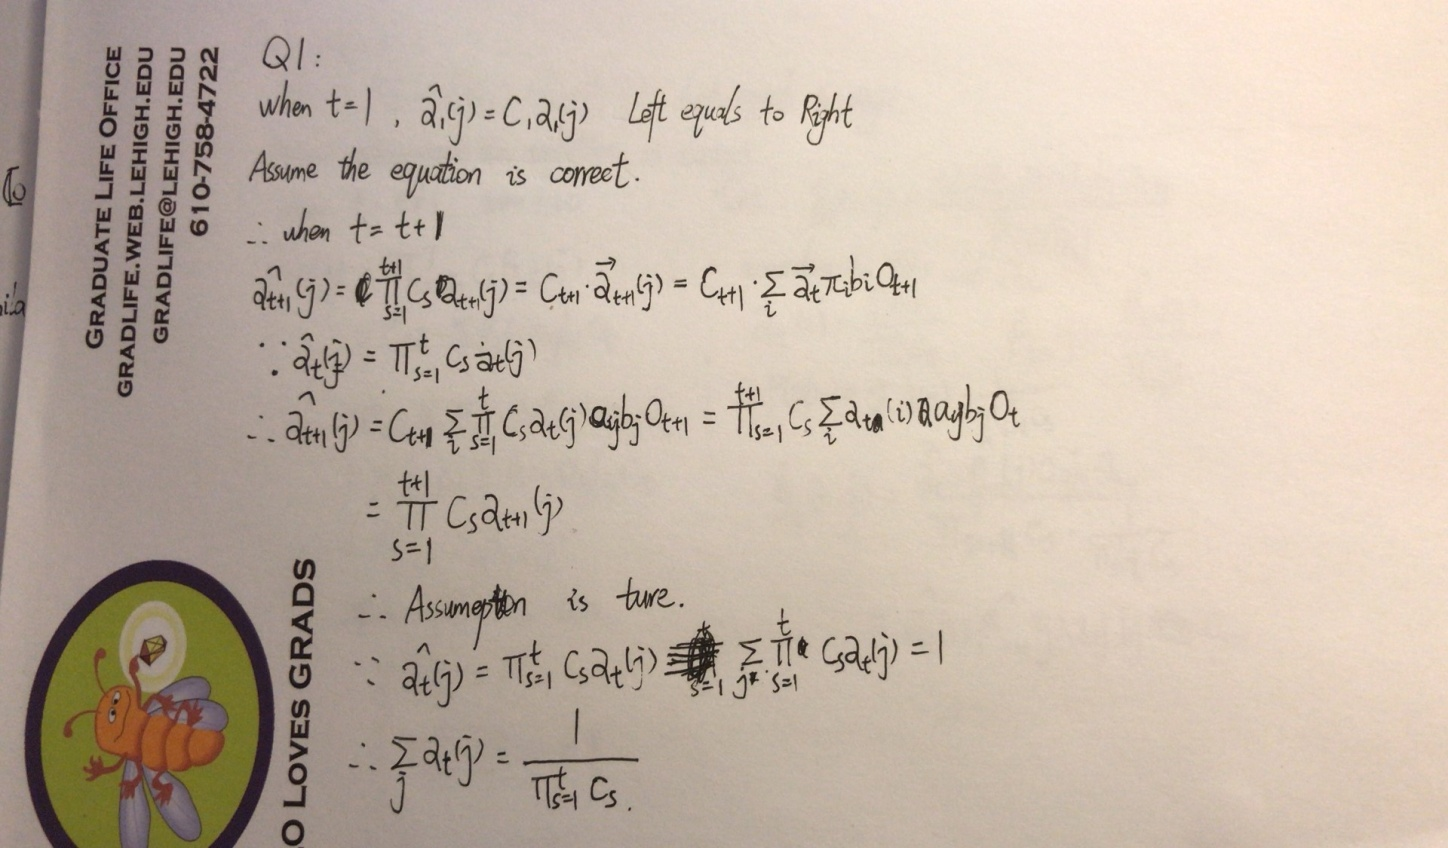 GRADUATE LIFE OFFICE
GRADLIFE.WEB.LEHIGH.EDU
GRADLIFE@LEHIGH.EDU
610-758-4722
O LOVES GRADS
Q1:
when t=1, â₁(j) = C₁a₁(j) Left equals to Right
Assume the equation is correct.
∴ when t = t+1
â_{t+1}(j) = ∏_{s=1}^{t+1} C_s a_{t+1}(j) = C_{t+1} · \vec{a}_{t+1}(j) = C_{t+1} · Σ_i \vec{a}_t π_i b_i O_{t+1}
∵ â_t(j) = ∏_{s=1}^t C_s a_t(j)
∴ â_{t+1}(j) = C_{t+1} Σ_i ∏_{s=1}^t C_s a_t(j) a_{ij} b_j O_{t+1} = ∏_{s=1}^{t+1} C_s Σ_i a_t(i) a_{ij} b_j O_t
= ∏_{s=1}^{t+1} C_s a_{t+1}(j)
∴ Assumeption is ture.
∵ â_t(j) = ∏_{s=1}^t C_s a_t(j) Σ_j ∏_{s=1}^t C_s a_t(j) = 1
∴ Σ_j a_t(j) = 1 / ∏_{s=1}^t C_s.